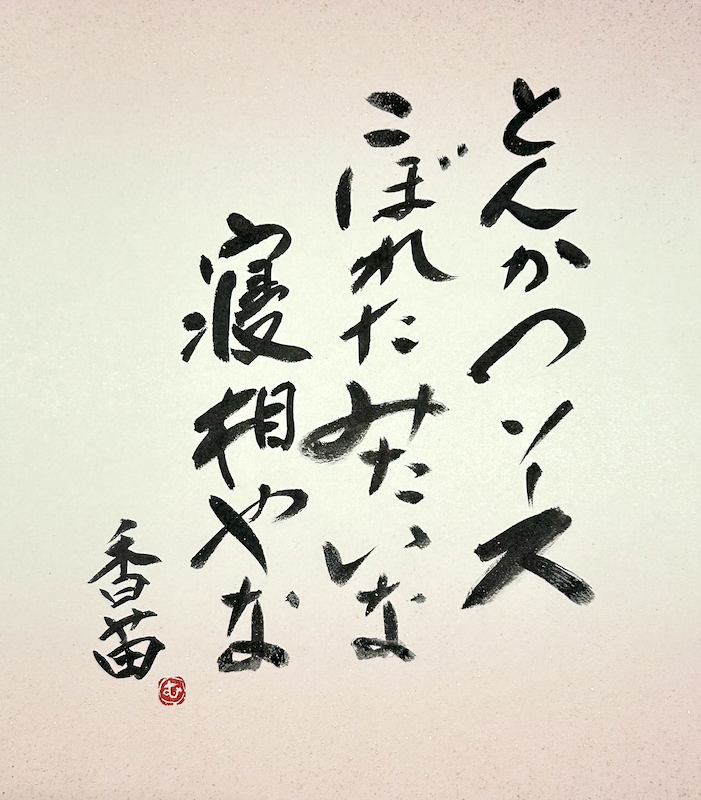 とんかつソース
こぼれたみたいな
寝相やな
香苗
む